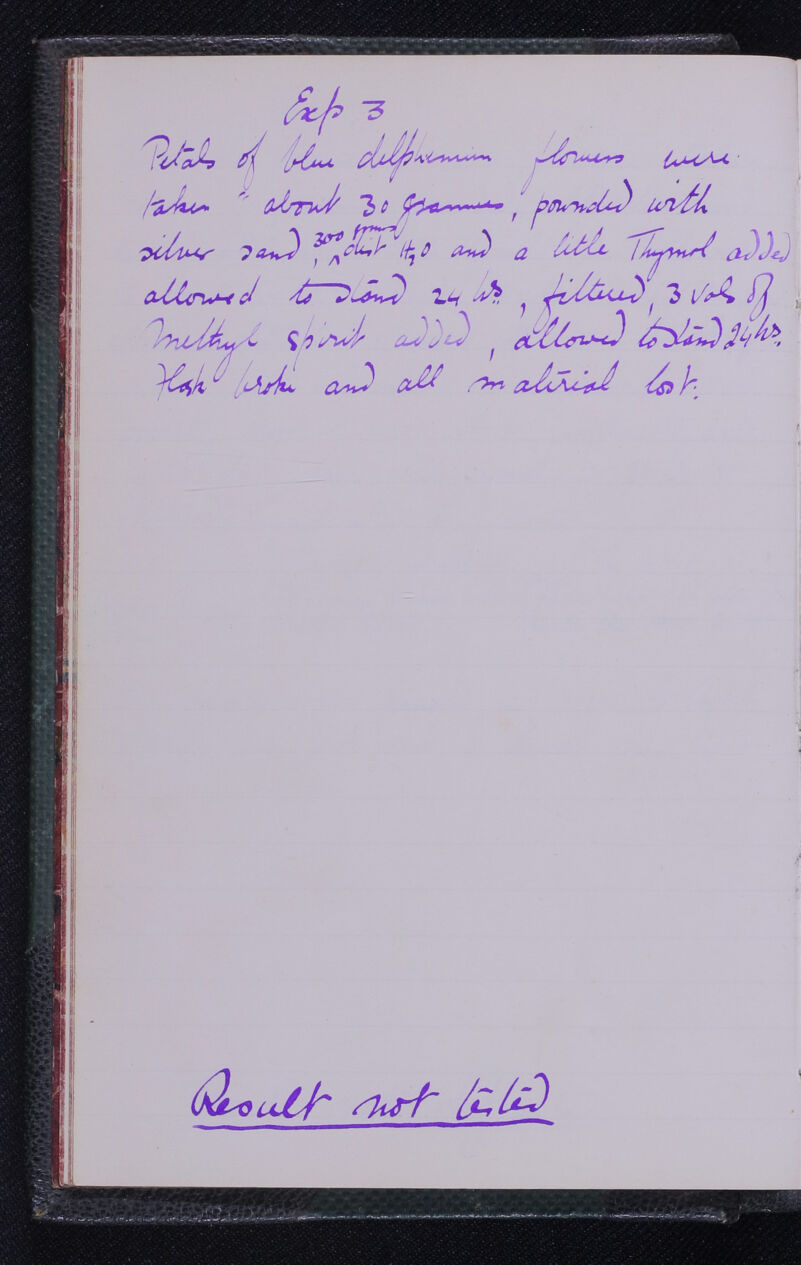 Exp 3
Petals of blue delphinium flowers were
taken - about 30 grammes, pounded with
silver sand, 300 grms dist H2O and a little Thymol added
allowed to stand 24 hrs, filtered, 3 vols of
Methyl spirit added, allowed to stand 24 hrs.
Flask broke and all material lost.
Result not tested